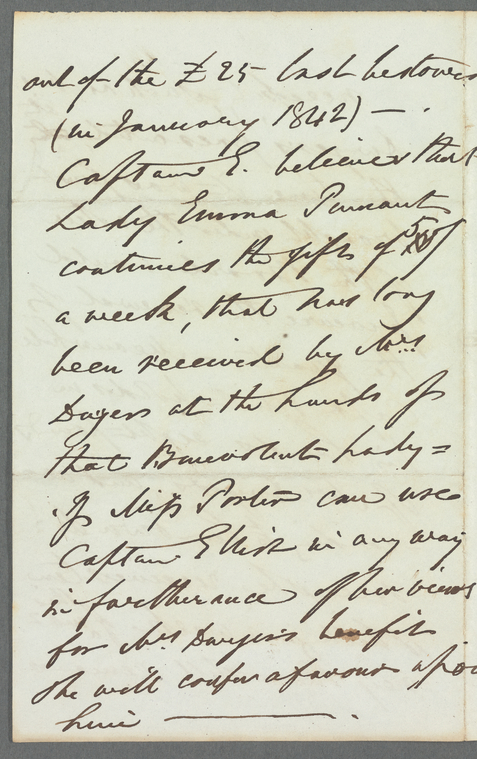 out of the £25 last bestowed
(in January 1842) — .
Captain E. believes that
Lady Emma Pennant
continues the gift of 5/
a week, that has long
been received by Mrs
Dwyer at the hands of
that Benevolent Lady =
If Miss Porter can use
Captain Elliot in any way
in furtherance of her views
for Mrs Dwyer's benefit
She will confer a favour upon
him ———— .